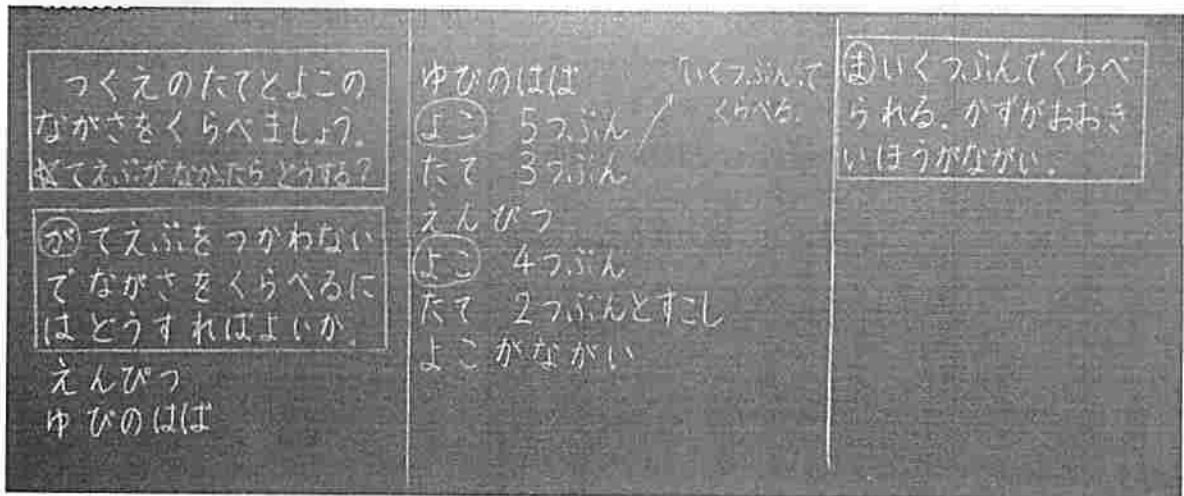 つくえのたてとよこの
ながさをくらべましょう.
てえぷがなかたら どうする?
が てえぷをつかわない
でながさをくらべるに
はどうすればよいか.
えんぴつ
ゆびのはば
ゆびのはば
よこ 5つぶん
たて 3つぶん
えんぴつ
よこ 4つぶん
たて 2つぶんとすこし
よこがながい
いくつぶんで
くらべる.
ま いくつぶんでくらべ
られる. かずがおおき
いほうがながい.